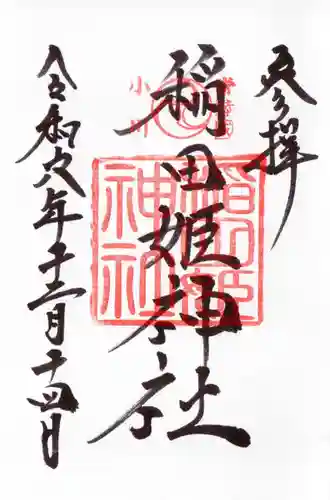 参拝
常陸国
小川
稲田姫神社
稲田姫
神社
令和六年十二月十四日